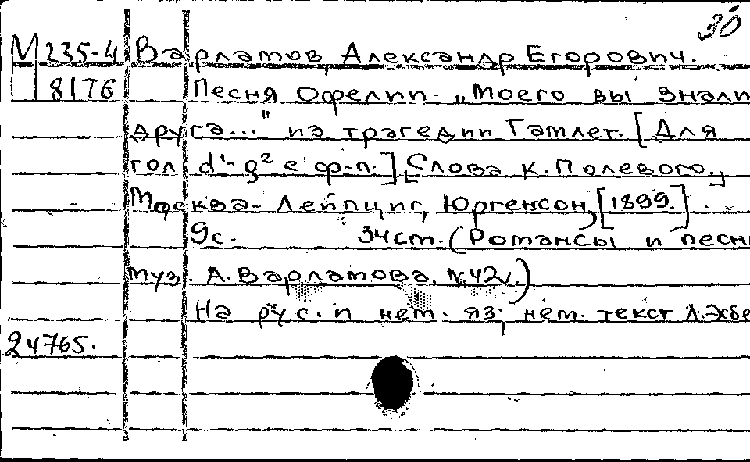 30
М 235-4 Варламов, Александр Егорович.
8176 Песня Офелии. „Моего вы знали
друга..." из трагедии Гамлет. [Для
гол. d¹-g² с ф-п.] [Слова К. Полевого.]
Москва-Лейпциг, Юргенсон, [1899.]
9с. 34см. (Романсы и песни
муз. А. Варламова. №42.)
На рус. и нем. яз; нем. текст Л. Эсбе
24765.